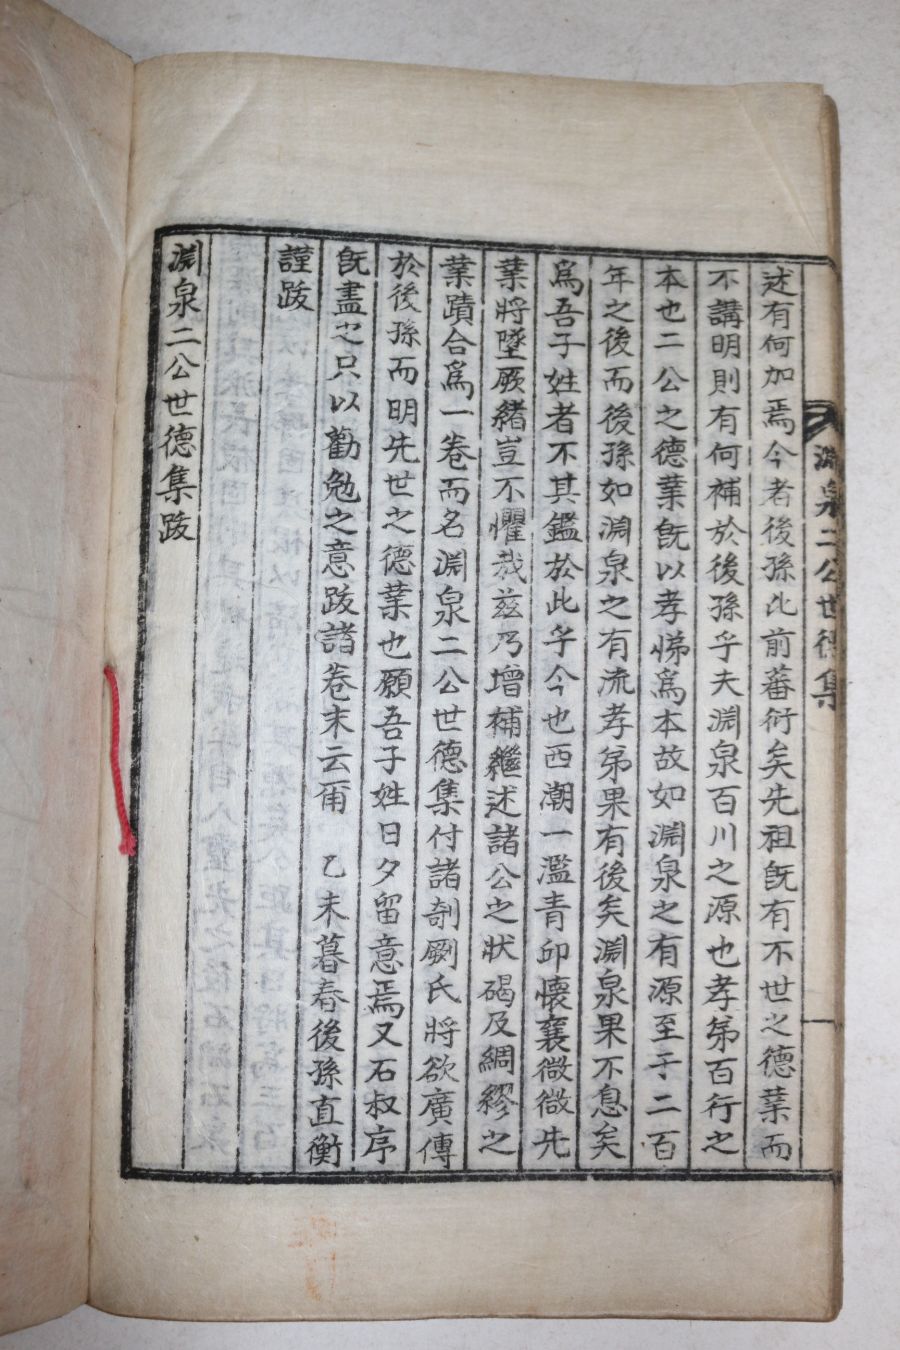 淵泉二公世德集
述有何加焉今者後孫比前蕃衍矣先祖旣有不世之德葉而
不講明則有何補於後孫乎夫淵泉百川之源也孝弟百行之
本也二公之德葉旣以孝悌爲本故如淵泉之有源至于二百
年之後而後孫如淵泉之有流孝弟果有後矣淵泉果不息矣
爲吾子姓者不其鑑於此乎今也西潮一濫青邱懷襄微微先
葉將墜厥緖豈不懼哉玆乃增補繼述諸公之狀碣及綢繆之
葉蹟合爲一卷而名淵泉二公世德集付諸剞劂氏將欲廣傳
於後孫而明先世之德葉也願吾子姓日夕留意焉又石叔序
旣盡之只以勸勉之意跋諸卷末云爾 乙未暮春後孫直衡
謹跋
淵泉二公世德集跋